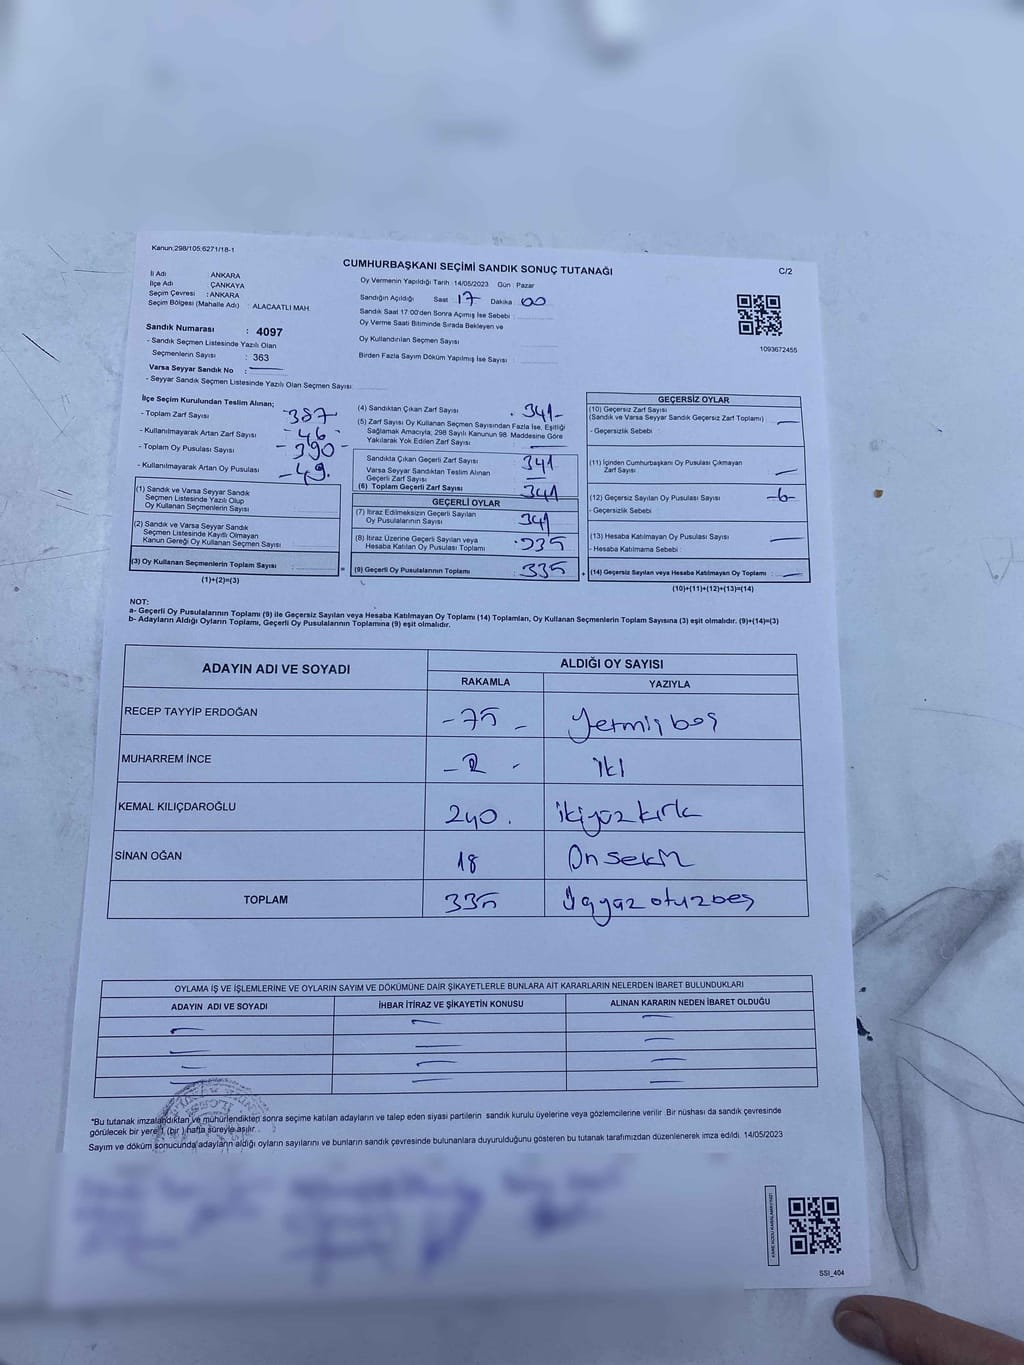 Kanun:298/105;6271/18-1
CUMHURBAŞKANI SEÇİMİ SANDIK SONUÇ TUTANAĞI
C/2
İli Adı : ANKARA
İlçe Adı : ÇANKAYA
Seçim Çevresi : ANKARA
Seçim Bölgesi (Mahalle Adı) : ALACAATLI MAH.
Oy Vermenin Yapıldığı Tarih : 14/05/2023 Gün : Pazar
Sandığın Açıldığı Saat : 17 Dakika : 00
Sandık Saat 17:00'den Sonra Açımış İse Sebebi :
Oy Verme Saati Bitiminde Sırada Bekleyen ve
Oy Kullandırılan Seçmen Sayısı
Birden Fazla Sayım Döküm Yapılmış İse Sayısı :
1093672455
Sandık Numarası : 4097
- Sandık Seçmen Listesinde Yazılı Olan
Seçmenlerin Sayısı : 363
Varsa Seyyar Sandık No :
- Seyyar Sandık Seçmen Listesinde Yazılı Olan Seçmen Sayısı:
İlçe Seçim Kurulundan Teslim Alınan;
- Toplam Zarf Sayısı -387
- Kullanılmayarak Artan Zarf Sayısı - 46 -
- Toplam Oy Pusulası Sayısı - 390 -
- Kullanılmayarak Artan Oy Pusulası - 49.
(1) Sandık ve Varsa Seyyar Sandık
Seçmen Listesinde Yazılı Olup
Oy Kullanan Seçmenlerin Sayısı
(2) Sandık ve Varsa Seyyar Sandık
Seçmen Listesinde Kayıtlı Olmayan
Kanun Gereği Oy Kullanan Seçmen Sayısı
(3) Oy Kullanan Seçmenlerin Toplam Sayısı
(1)+(2)=(3)
=
(4) Sandıktan Çıkan Zarf Sayısı . 341-
(5) Zarf Sayısı Oy Kullanan Seçmen Sayısından Fazla İse, Eşitliği
Sağlamak Amacıyla; 298 Sayılı Kanunun 98. Maddesine Göre
Yakılarak Yok Edilen Zarf Sayısı
Sandıkta Çıkan Geçerli Zarf Sayısı 341
Varsa Seyyar Sandıktan Teslim Alınan
Geçerli Zarf Sayısı
(6) Toplam Geçerli Zarf Sayısı 341
GEÇERLİ OYLAR
(7) İtiraz Edilmeksizin Geçerli Sayılan
Oy Pusulalarının Sayısı 341
(8) İtiraz Üzerine Geçerli Sayılan veya
Hesaba Katılan Oy Pusulası Toplamı 335
(9) Geçerli Oy Pusulalarının Toplamı 335
+
GEÇERSİZ OYLAR
(10) Geçersiz Zarf Sayısı
(Sandık ve Varsa Seyyar Sandık Geçersiz Zarf Toplamı)
- Geçersizlik Sebebi :
(11) İçinden Cumhurbaşkanı Oy Pusulası Çıkmayan
Zarf Sayısı
(12) Geçersiz Sayılan Oy Pusulası Sayısı -6-
- Geçersizlik Sebebi
(13) Hesaba Katılmayan Oy Pusulası Sayısı
- Hesaba Katılmama Sebebi :
(14) Geçersiz Sayılan veya Hesaba Katılmayan Oy Toplamı
(10)+(11)+(12)+(13)=(14)
NOT:
a- Geçerli Oy Pusulalarının Toplamı (9) ile Geçersiz Sayılan veya Hesaba Katılmayan Oy Toplamı (14) Toplamları, Oy Kullanan Seçmenlerin Toplam Sayısına (3) eşit olmalıdır. (9)+(14)=(3)
b- Adayların Aldığı Oyların Toplamı, Geçerli Oy Pusulalarının Toplamına (9) eşit olmalıdır.
ADAYIN ADI VE SOYADI
ALDIĞI OY SAYISI
RAKAMLA YAZIYLA
RECEP TAYYİP ERDOĞAN - 75 - Yetmiş beş
MUHARREM İNCE - 2 - iki
KEMAL KILIÇDAROĞLU 240. ikiyüz kırk
SİNAN OĞAN 18 On sekiz
TOPLAM 335 Üçyüz otuzbeş
OYLAMA İŞ VE İŞLEMLERİNE VE OYLARIN SAYIM VE DÖKÜMÜNE DAİR ŞİKAYETLERLE BUNLARA AİT KARARLARIN NELERDEN İBARET BULUNDUKLARI
ADAYIN ADI VE SOYADI İHBAR İTİRAZ VE ŞİKAYETİN KONUSU ALINAN KARARIN NEDEN İBARET OLDUĞU
*Bu tutanak imzalandıktan ve mühürlendikten sonra seçime katılan adayların ve talep eden siyasi partilerin sandık kurulu üyelerine veya gözlemcilerine verilir. Bir nüshası da sandık çevresinde
görülecek bir yere 1 (bir) hafta süreyle asılır.
Sayım ve döküm sonucunda adayların aldığı oyların sayılarını ve bunların sandık çevresinde bulunanlara duyurulduğunu gösteren bu tutanak tarafımızdan düzenlenerek imza edildi. 14/05/2023
SSI_404